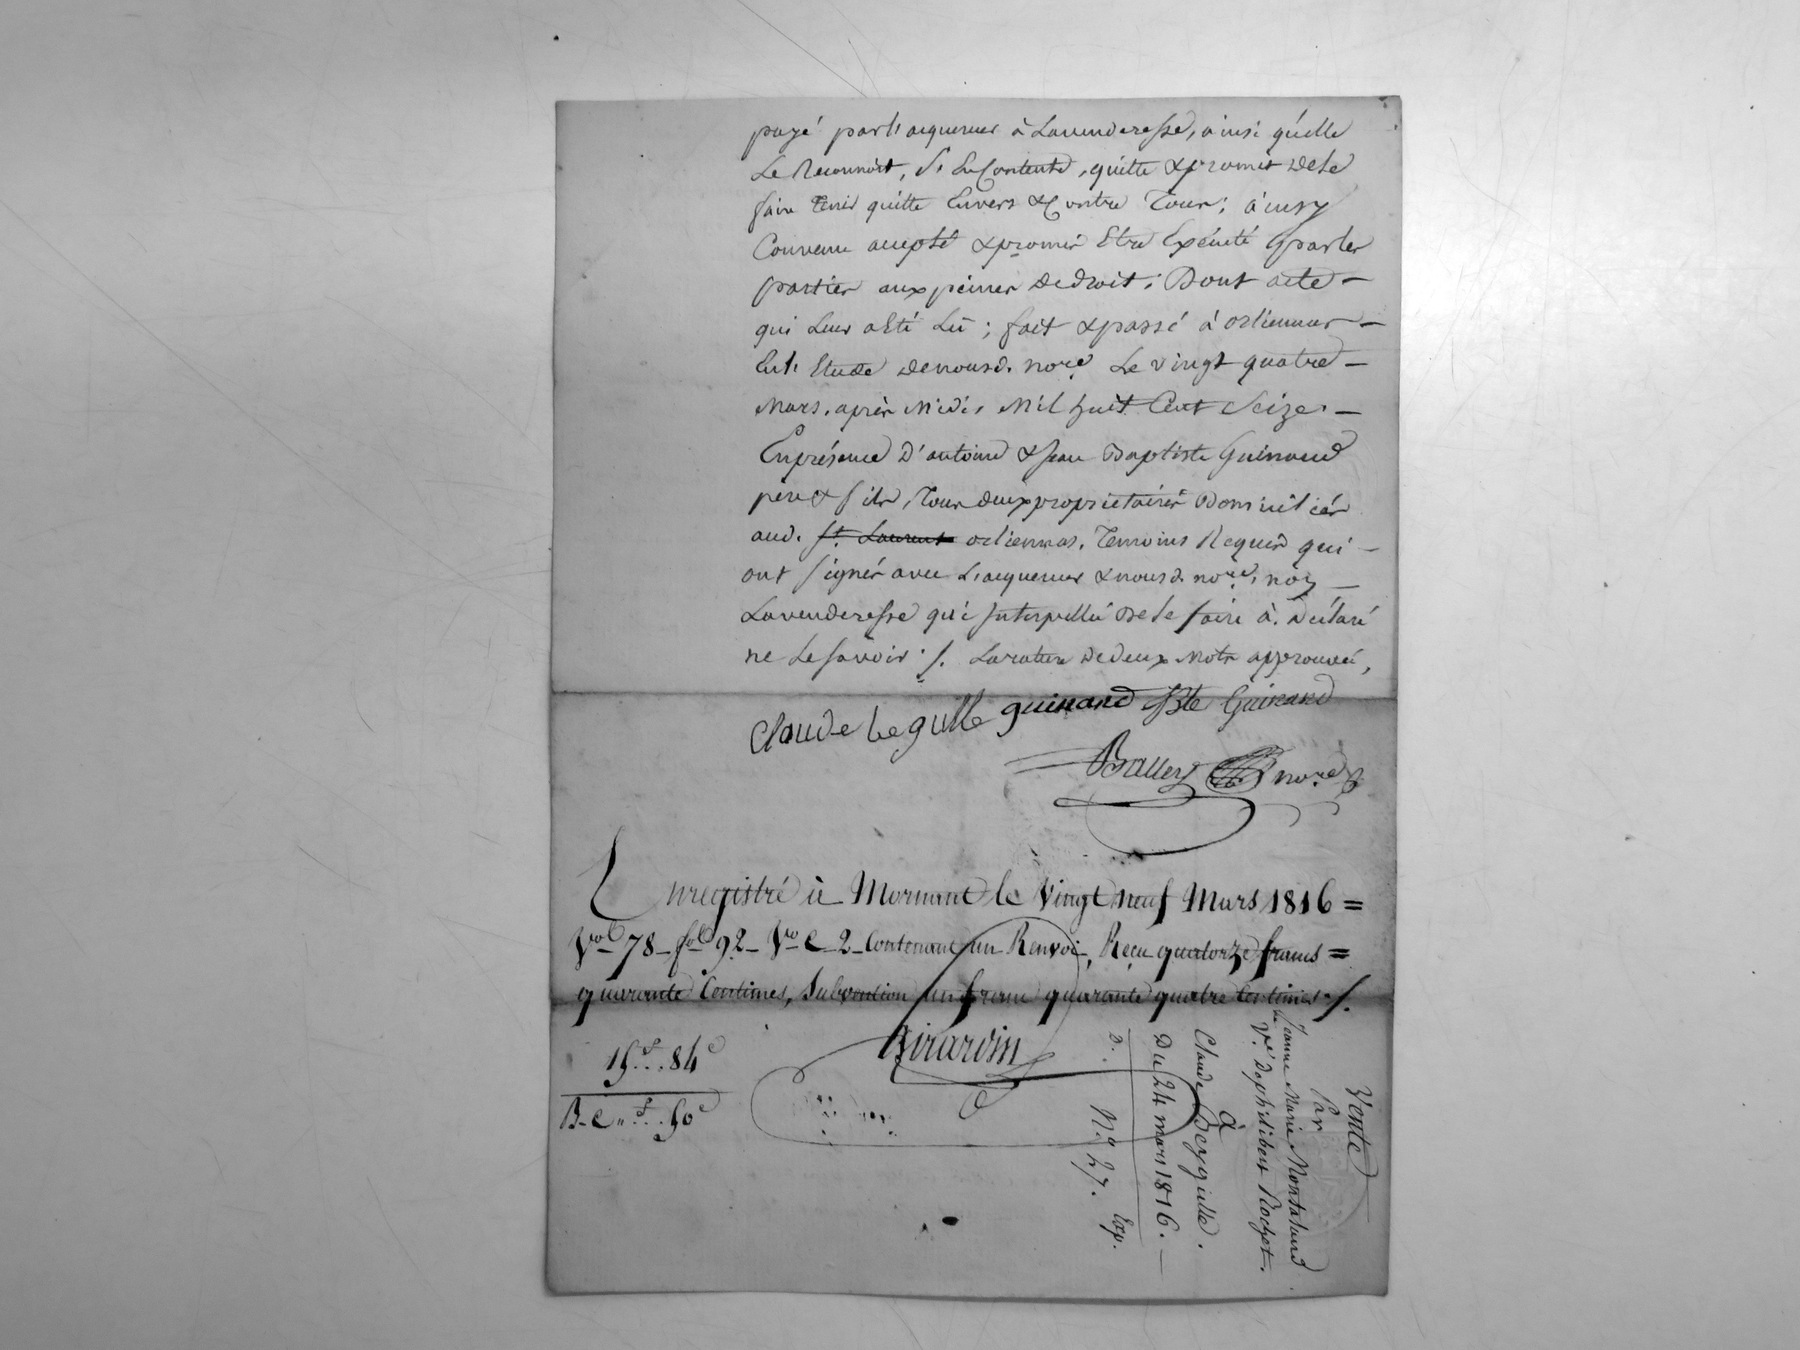 payé par l'acquereur à Lavenderesse, ainsi qu'elle
Le Reconnoit, S'en Contente, quitte & promet De le
faire Tenir quitte Envers & Contre Tous; ainsy
Convenu accepté & promis Etre Exécuté par les
parties aux peines De droit; Dont acte —
qui Leur a Eté Lu; fait & passé à orlienas —
En l'Etude de nousd. no.re Le vingt quatre —
Mars, après Midi, Mil huit Cent Seize. —
En présence D'antoine & Jean Baptiste Guinand
père & fils, Tous deux propriétaires Domiciliés
aud. St. Laurent orlienas, Temoins Requis qui —
ont signés avec L'acquereur & nousd. no.re, non —
Lavenderesse qui Interpellée De le faire à Déclaré
ne Le savoir ./. La rature De deux Mots approuvée,
Claude Begulle guinand JBte Guinand
Balley no.re
Enregistré à Mornant le Vingt neuf Mars 1816 =
Vol 78 - fol 92 - Vo C 2 - Contenant un Renvoi, Reçu quatorze francs =
quarante Centimes, Subvention un franc quarante quatre Centimes ./.
Girardin
15f..84c
B-C "f..50c
Vente
Par
Jeanne Marie Montaland
Ve. De philibert Rochet.
à
Claude Begulle.
Du 24 mars 1816. —
D. No. 27. Exp.